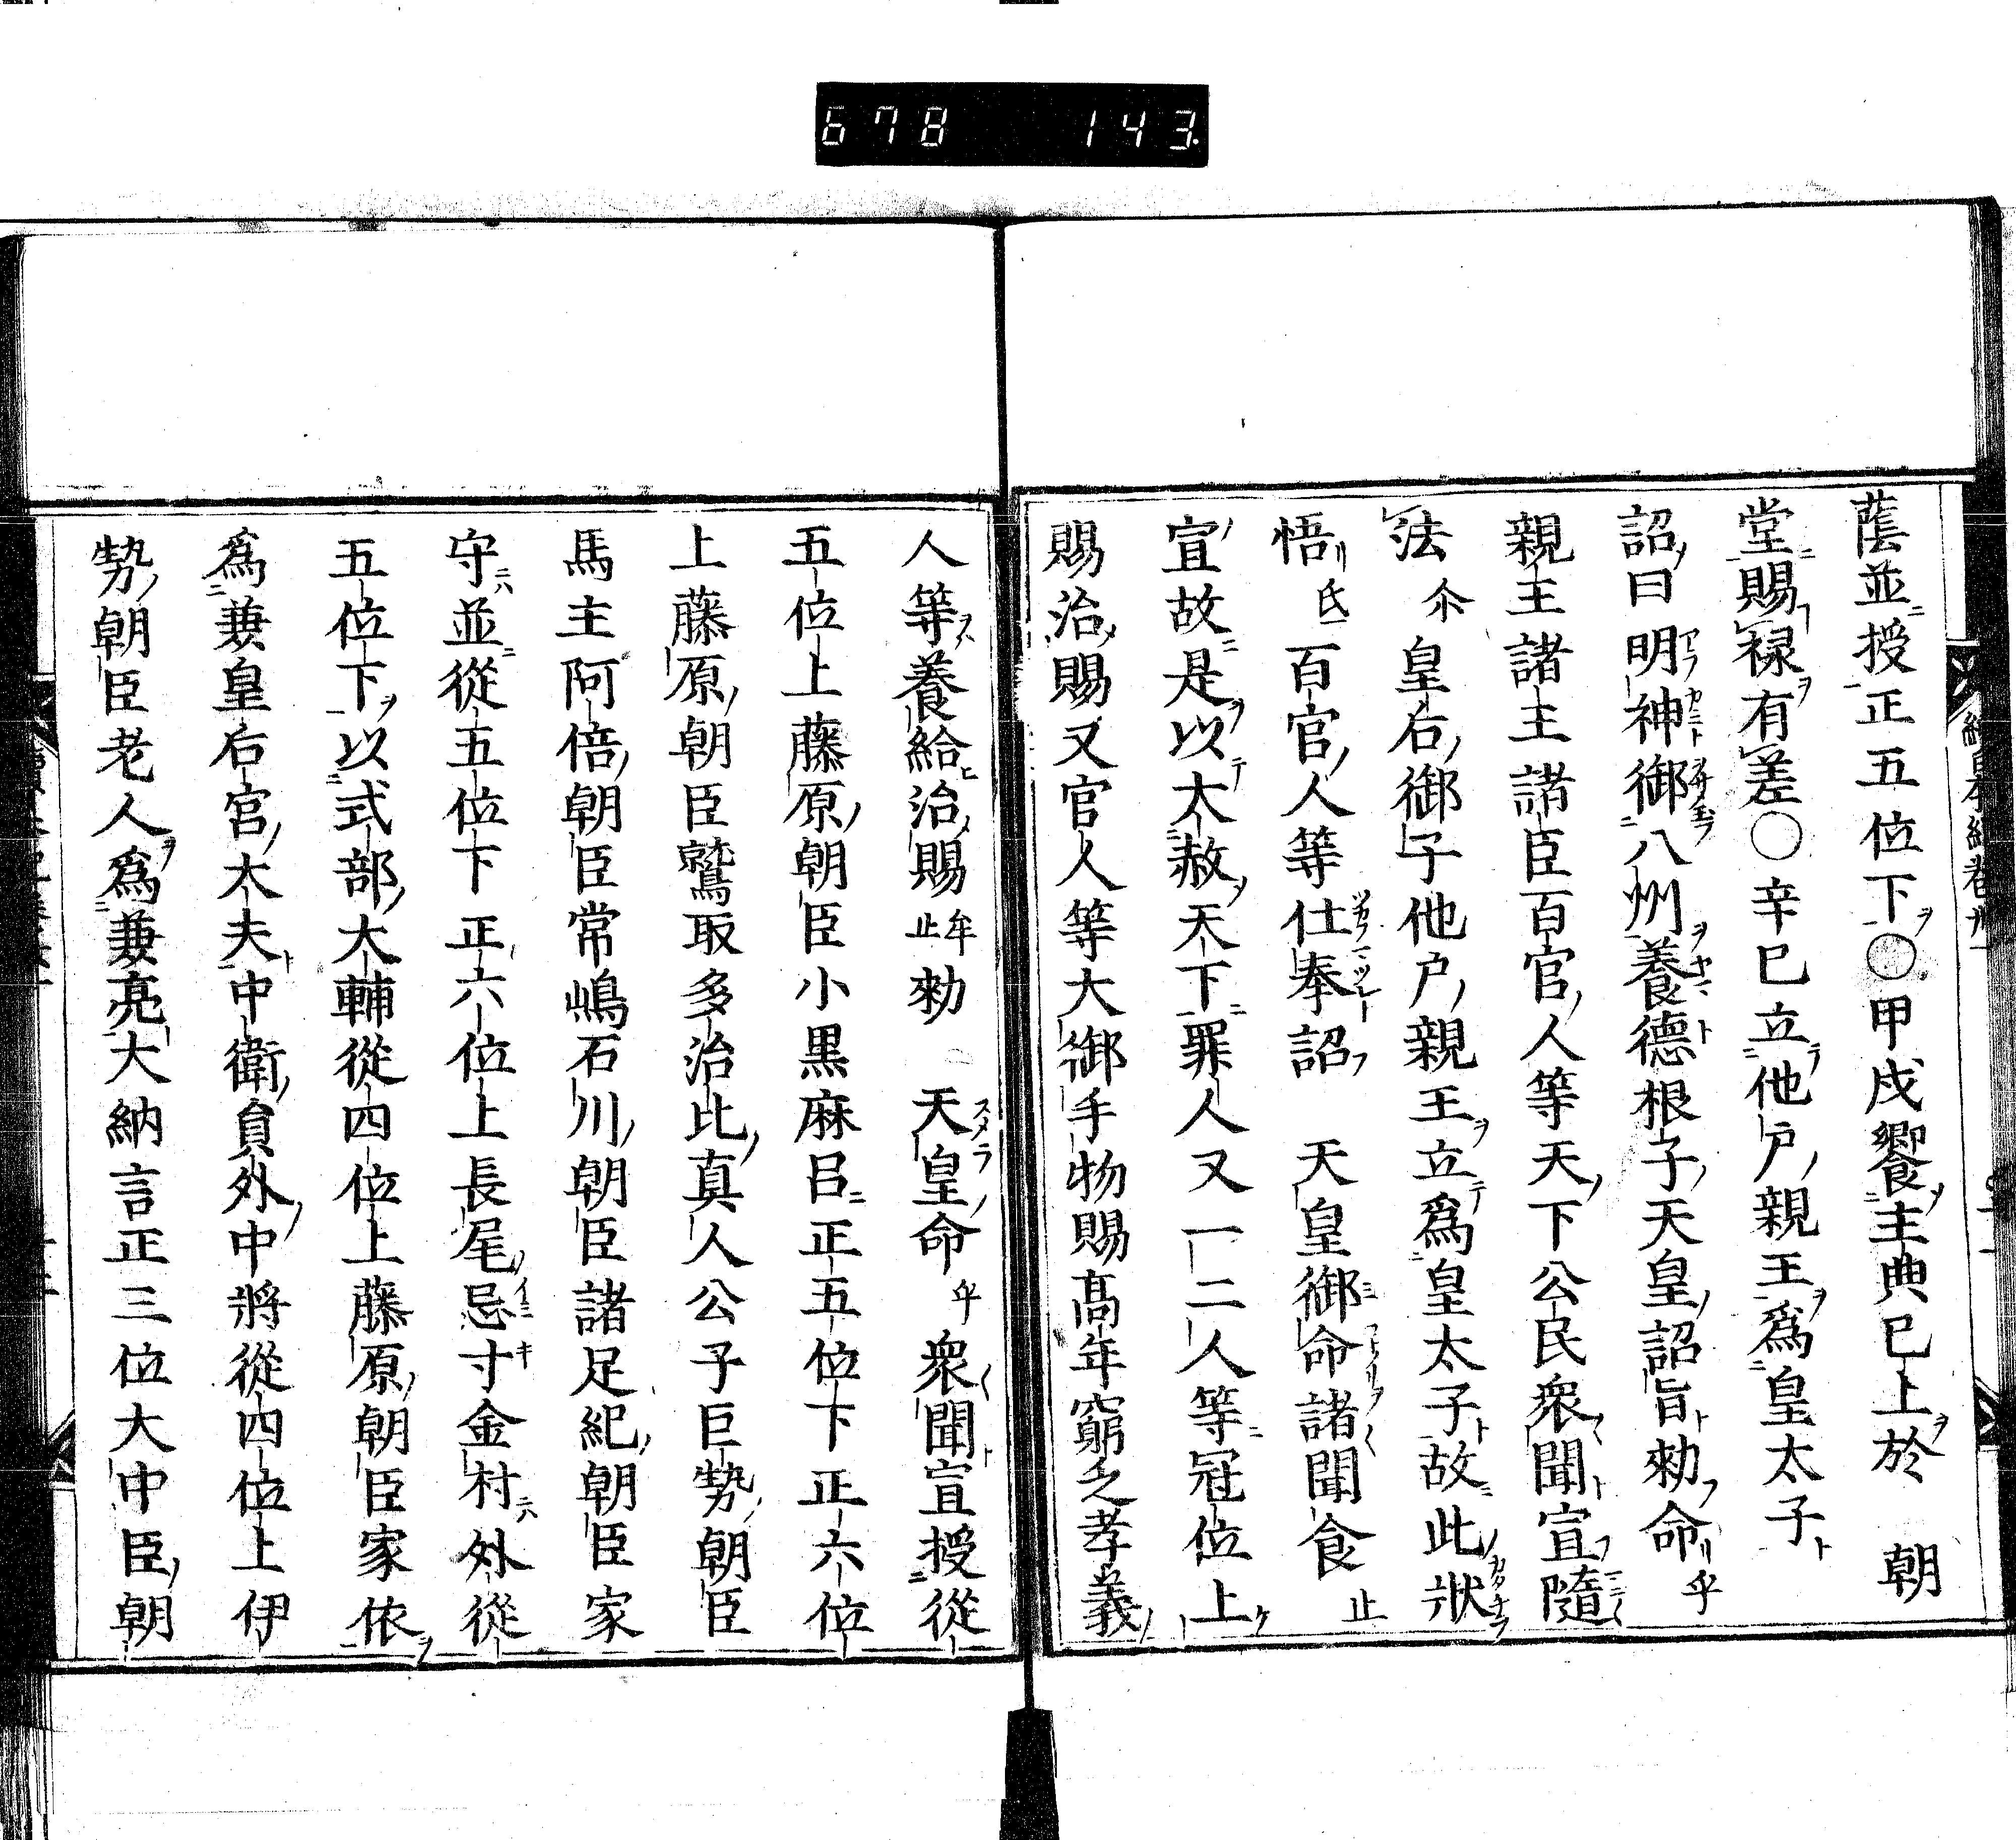 678 143.
蔭並授正五位下○甲戌饗主典已上於 朝
堂賜祿有差○辛巳立他戸親王爲皇太子
詔曰明神御八州養德根子天皇詔旨勅命乎
親王諸王諸臣百官人等天下公民衆聞宣隨
法尒皇后御子他戸親王立爲皇太子故此狀
悟氐百官人等仕奉詔 天皇御命諸聞食止
宣故是以大赦天下罪人又一二人等冠位上
賜治賜又官人等大御手物賜高年窮乏孝義
人等養給治賜牟止勅 天皇命乎衆聞宣授從
五位上藤原朝臣小黒麻呂正五位下正六位
上藤原朝臣鷲取多治比真人公子巨勢朝臣
馬主阿倍朝臣常嶋石川朝臣諸足紀朝臣家
守並從五位下正六位上長尾忌寸金村外從
五位下以式部大輔從四位上藤原朝臣家依
爲兼皇后宮大夫中衛員外中將從四位上伊
勢朝臣老人爲兼亮大納言正三位大中臣朝